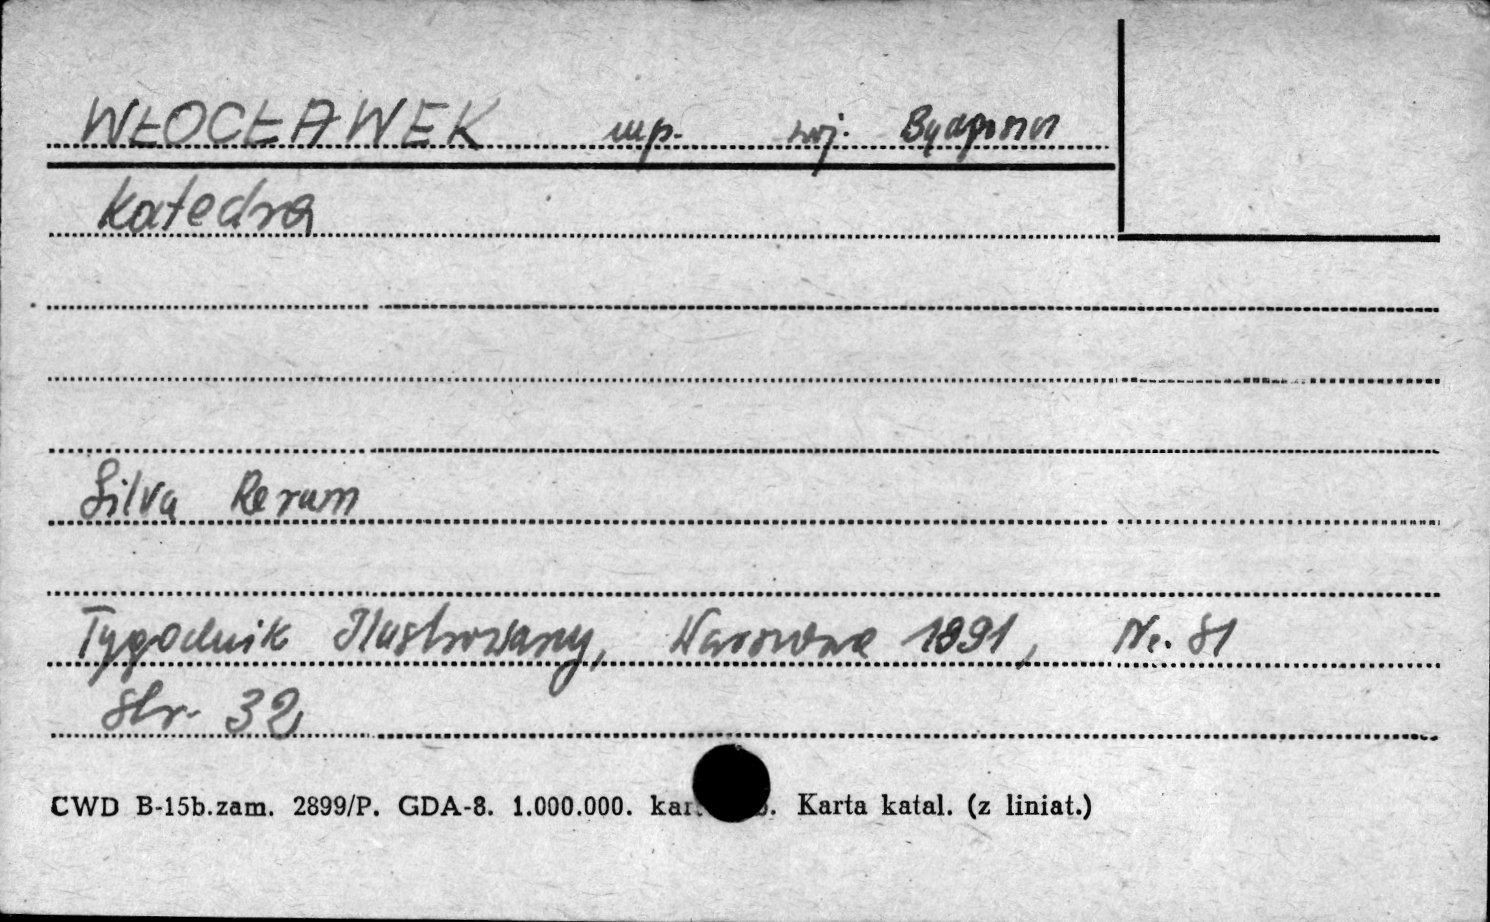 WŁOCŁAWEK mp. woj. Bydgoszcz
Katedra
Silva Rerum
Tygodnik Ilustrowany, Warszawa 1891, Nr. 81
Str. 32
CWD B-15b.zam. 2899/P. GDA-8. 1.000.000. Karta katal. (z liniat.)